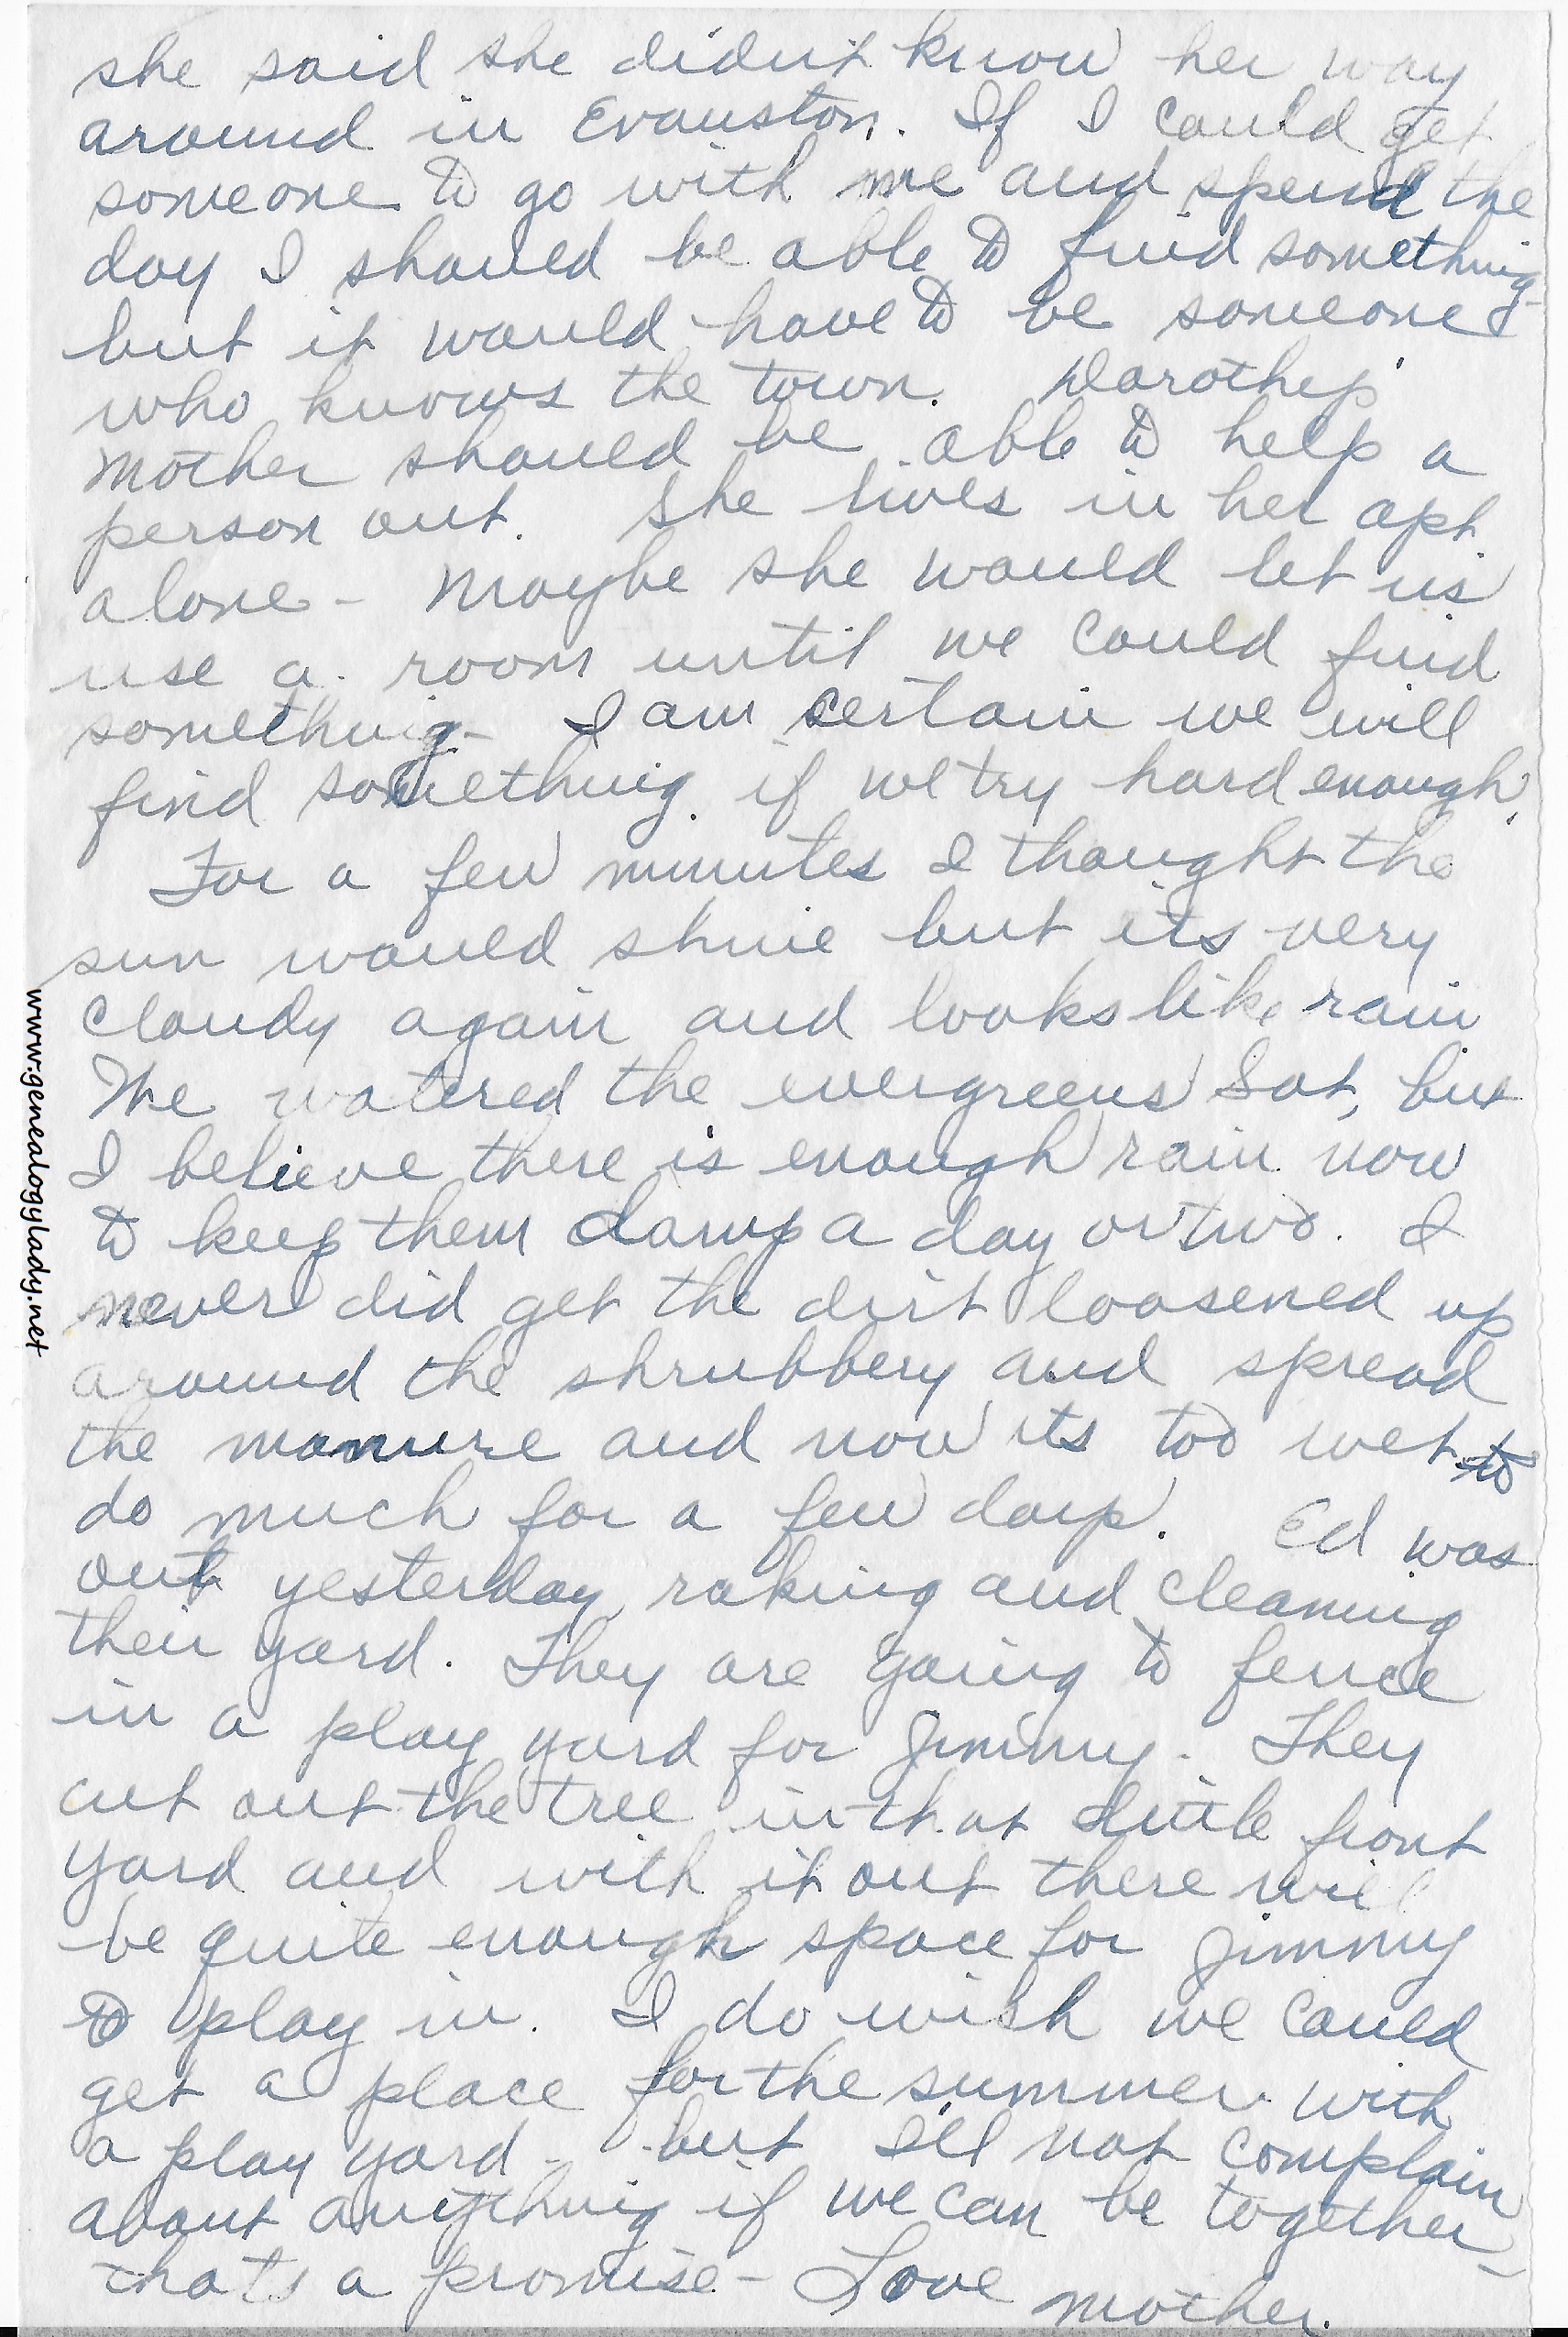 she said she didn't know her way
around in Evanston. If I could get
someone to go with me and spend the
day I should be able to find something-
but it would have to be someone
who knows the town. Dorothy's
mother should be able to help a
person out. She lives in her apt.
alone - Maybe she would let us
use a room until we could find
something - I am certain we will
find something if we try hard enough.
For a few minutes I thought the
sun would shine but its very
cloudy again and looks like rain
We watered the evergreens Sat, but
I believe there is enough rain now
to keep them damp a day or two. I
never did get the dirt loosened up
around the shrubbery and spread
the manure and now its too wet to
do much for a few days. Ed was
out yesterday raking and cleaning
their yard. They are going to fence
in a play yard for Jimmy. They
cut out the tree in that little front
yard and with it out there will
be quite enough space for Jimmy
to play in. I do wish we could
get a place for the summer with
a play yard - but I'll not complain
about anything if we can be together -
that's a promise - Love Mother.
www.genealogylady.net